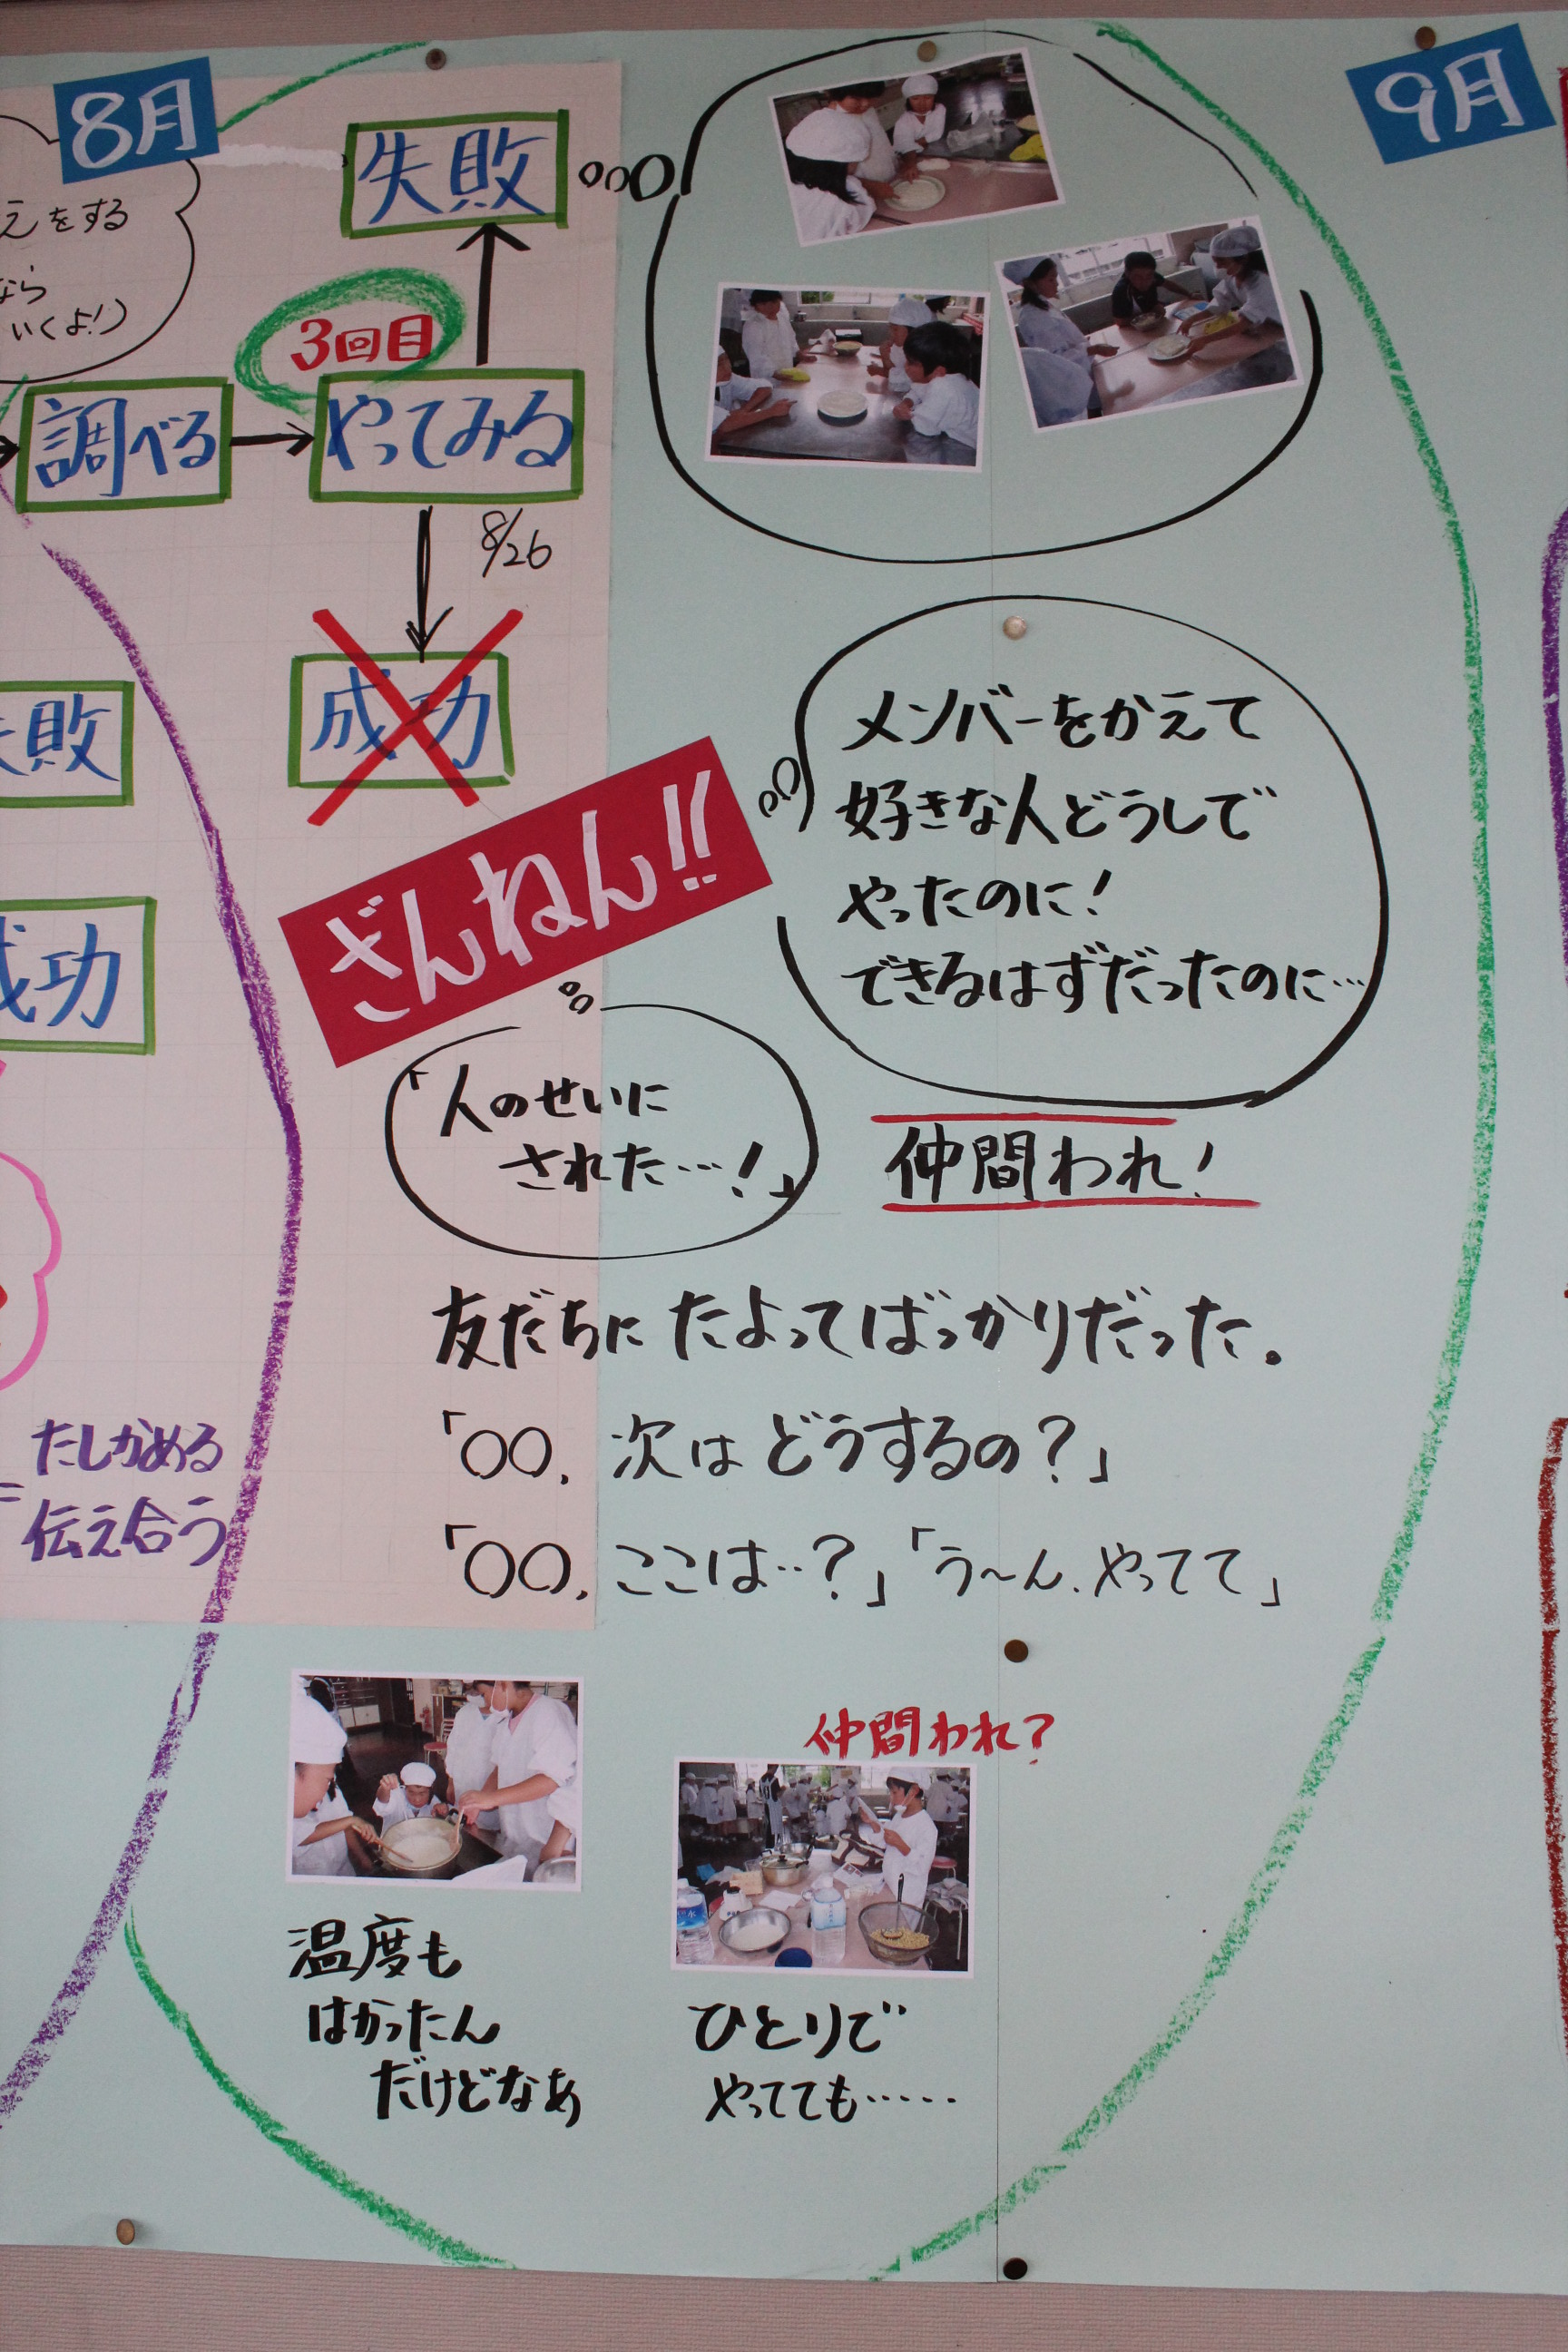 8月
9月
失敗
えをする
なら
いくよ!)
3回目
調べる
やってみる
8/26
敗
成功
功
ざんねん!!
メンバーをかえて
好きな人どうしで
やったのに!
できるはずだったのに…
「人のせいに
された…!」
仲間われ!
友だちにたよってばっかりだった。
「○○,次はどうするの?」
「○○,ここは‥?」「う〜ん.やってて」
たしかめる
=伝え合う
仲間われ?
温度も
はかったん
だけどなあ
ひとりで
やってても……